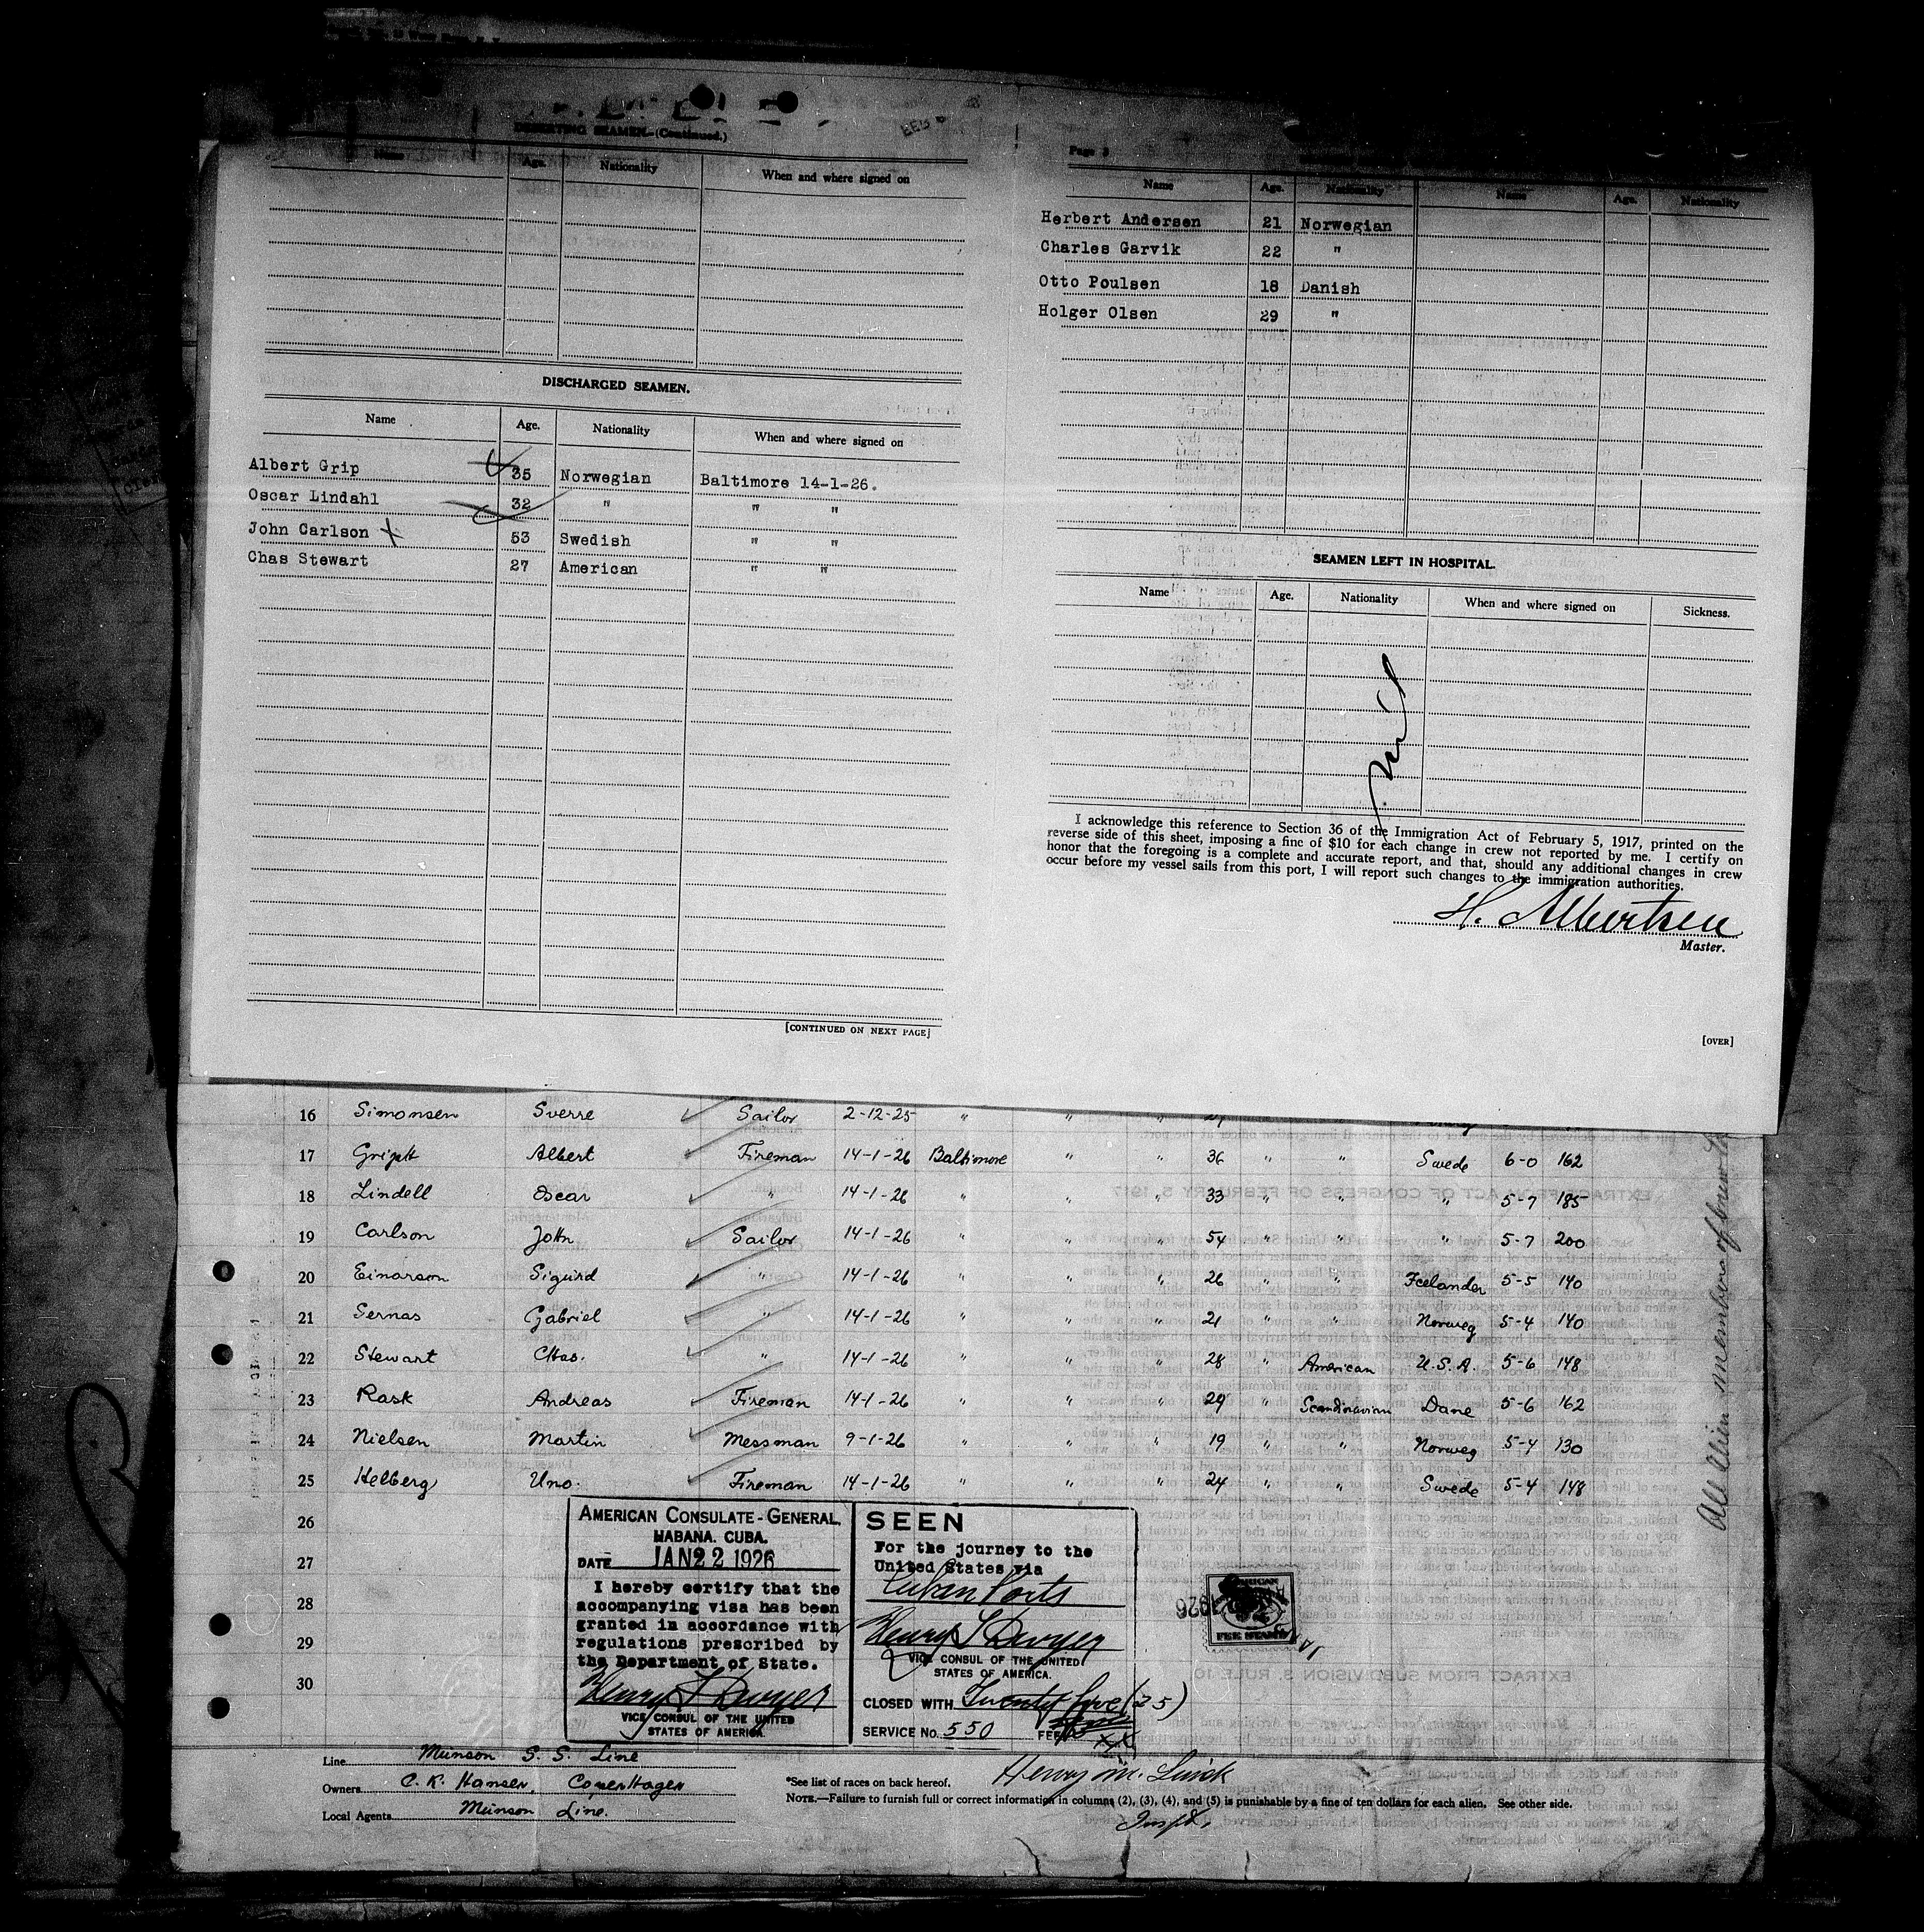 DESERTING SEAMEN—(Continued.)
Name Age. Nationality When and where signed on
DISCHARGED SEAMEN.
Name Age. Nationality When and where signed on
Albert Grip 35 Norwegian Baltimore 14-1-26.
Oscar Lindahl 32 " " "
John Carlson 53 Swedish " "
Chas Stewart 27 American " "
[CONTINUED ON NEXT PAGE]
Page 3
Name Age. Nationality Name Age. Nationality
Herbert Andersen 21 Norwegian
Charles Garvik 22 "
Otto Poulsen 18 Danish
Holger Olsen 29 "
SEAMEN LEFT IN HOSPITAL.
Name Age. Nationality When and where signed on Sickness.
I acknowledge this reference to Section 36 of the Immigration Act of February 5, 1917, printed on the
reverse side of this sheet, imposing a fine of $10 for each change in crew not reported by me. I certify on
honor that the foregoing is a complete and accurate report, and that, should any additional changes in crew
occur before my vessel sails from this port, I will report such changes to the immigration authorities.
H. Albertsen
Master.
[OVER]
16 Simonsen Sverre Sailor 2-12-25 " " "
17 Gripth Albert Fireman 14-1-26 Baltimore " " 36 " " Swede 6-0 162
18 Lindell Oscar " 14-1-26 " " " 33 " " " 5-7 185
19 Carlson John Sailor 14-1-26 " " " 54 " " " 5-7 200
20 Einarson Sigurd " 14-1-26 " " " 26 " " Icelander 5-5 140
21 Sernas Gabriel " 14-1-26 " " " 21 " " Norweg 5-4 140
22 Stewart Chas. " 14-1-26 " " " 28 " American U.S.A. 5-6 148
23 Rask Andreas Fireman 14-1-26 " " " 29 " Scandinavian Dane 5-6 162
24 Nielsen Martin Messman 9-1-26 " " " 19 " " Norweg 5-4 130
25 Helberg Uno. Fireman 14-1-26 " " " 24 " " Swede 5-4 148
26
27
28
29
30
AMERICAN CONSULATE-GENERAL,
HABANA. CUBA.
DATE JAN 22 1926
I hereby certify that the
accompanying visa has been
granted in accordance with
regulations prescribed by
the Department of State.
Henry T Dwyer
VICE CONSUL OF THE UNITED
STATES OF AMERICA
SEEN
For the journey to the
United States via
Cuban Ports
Henry T Dwyer
VICE CONSUL OF THE UNITED
STATES OF AMERICA.
CLOSED WITH Twenty five (25)
SERVICE No. 550 FEE
AMERICAN
FEE STAMP
1926
All alien members of crew
Line Munson S. S. Line
Owners C. K. Hansen, Copenhagen
Local Agents Munson Line.
*See list of races on back hereof.
Henry M.
NOTE.—Failure to furnish full or correct information in columns (2), (3), (4), and (5) is punishable by a fine of ten dollars for each alien. See other side.
Inspt.